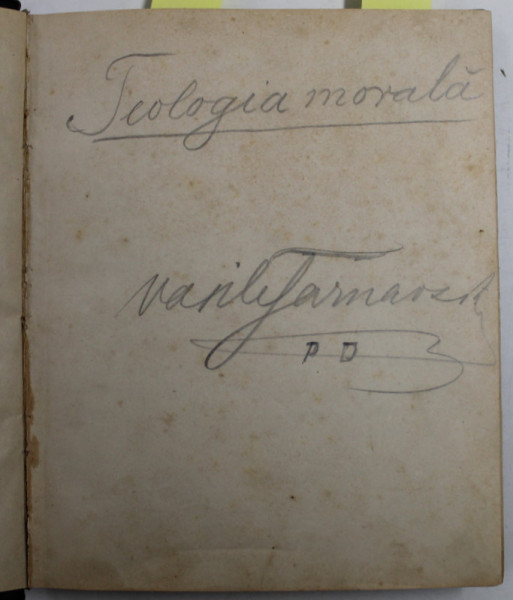 Teologia morală
Vasile Tarnavschi
P D